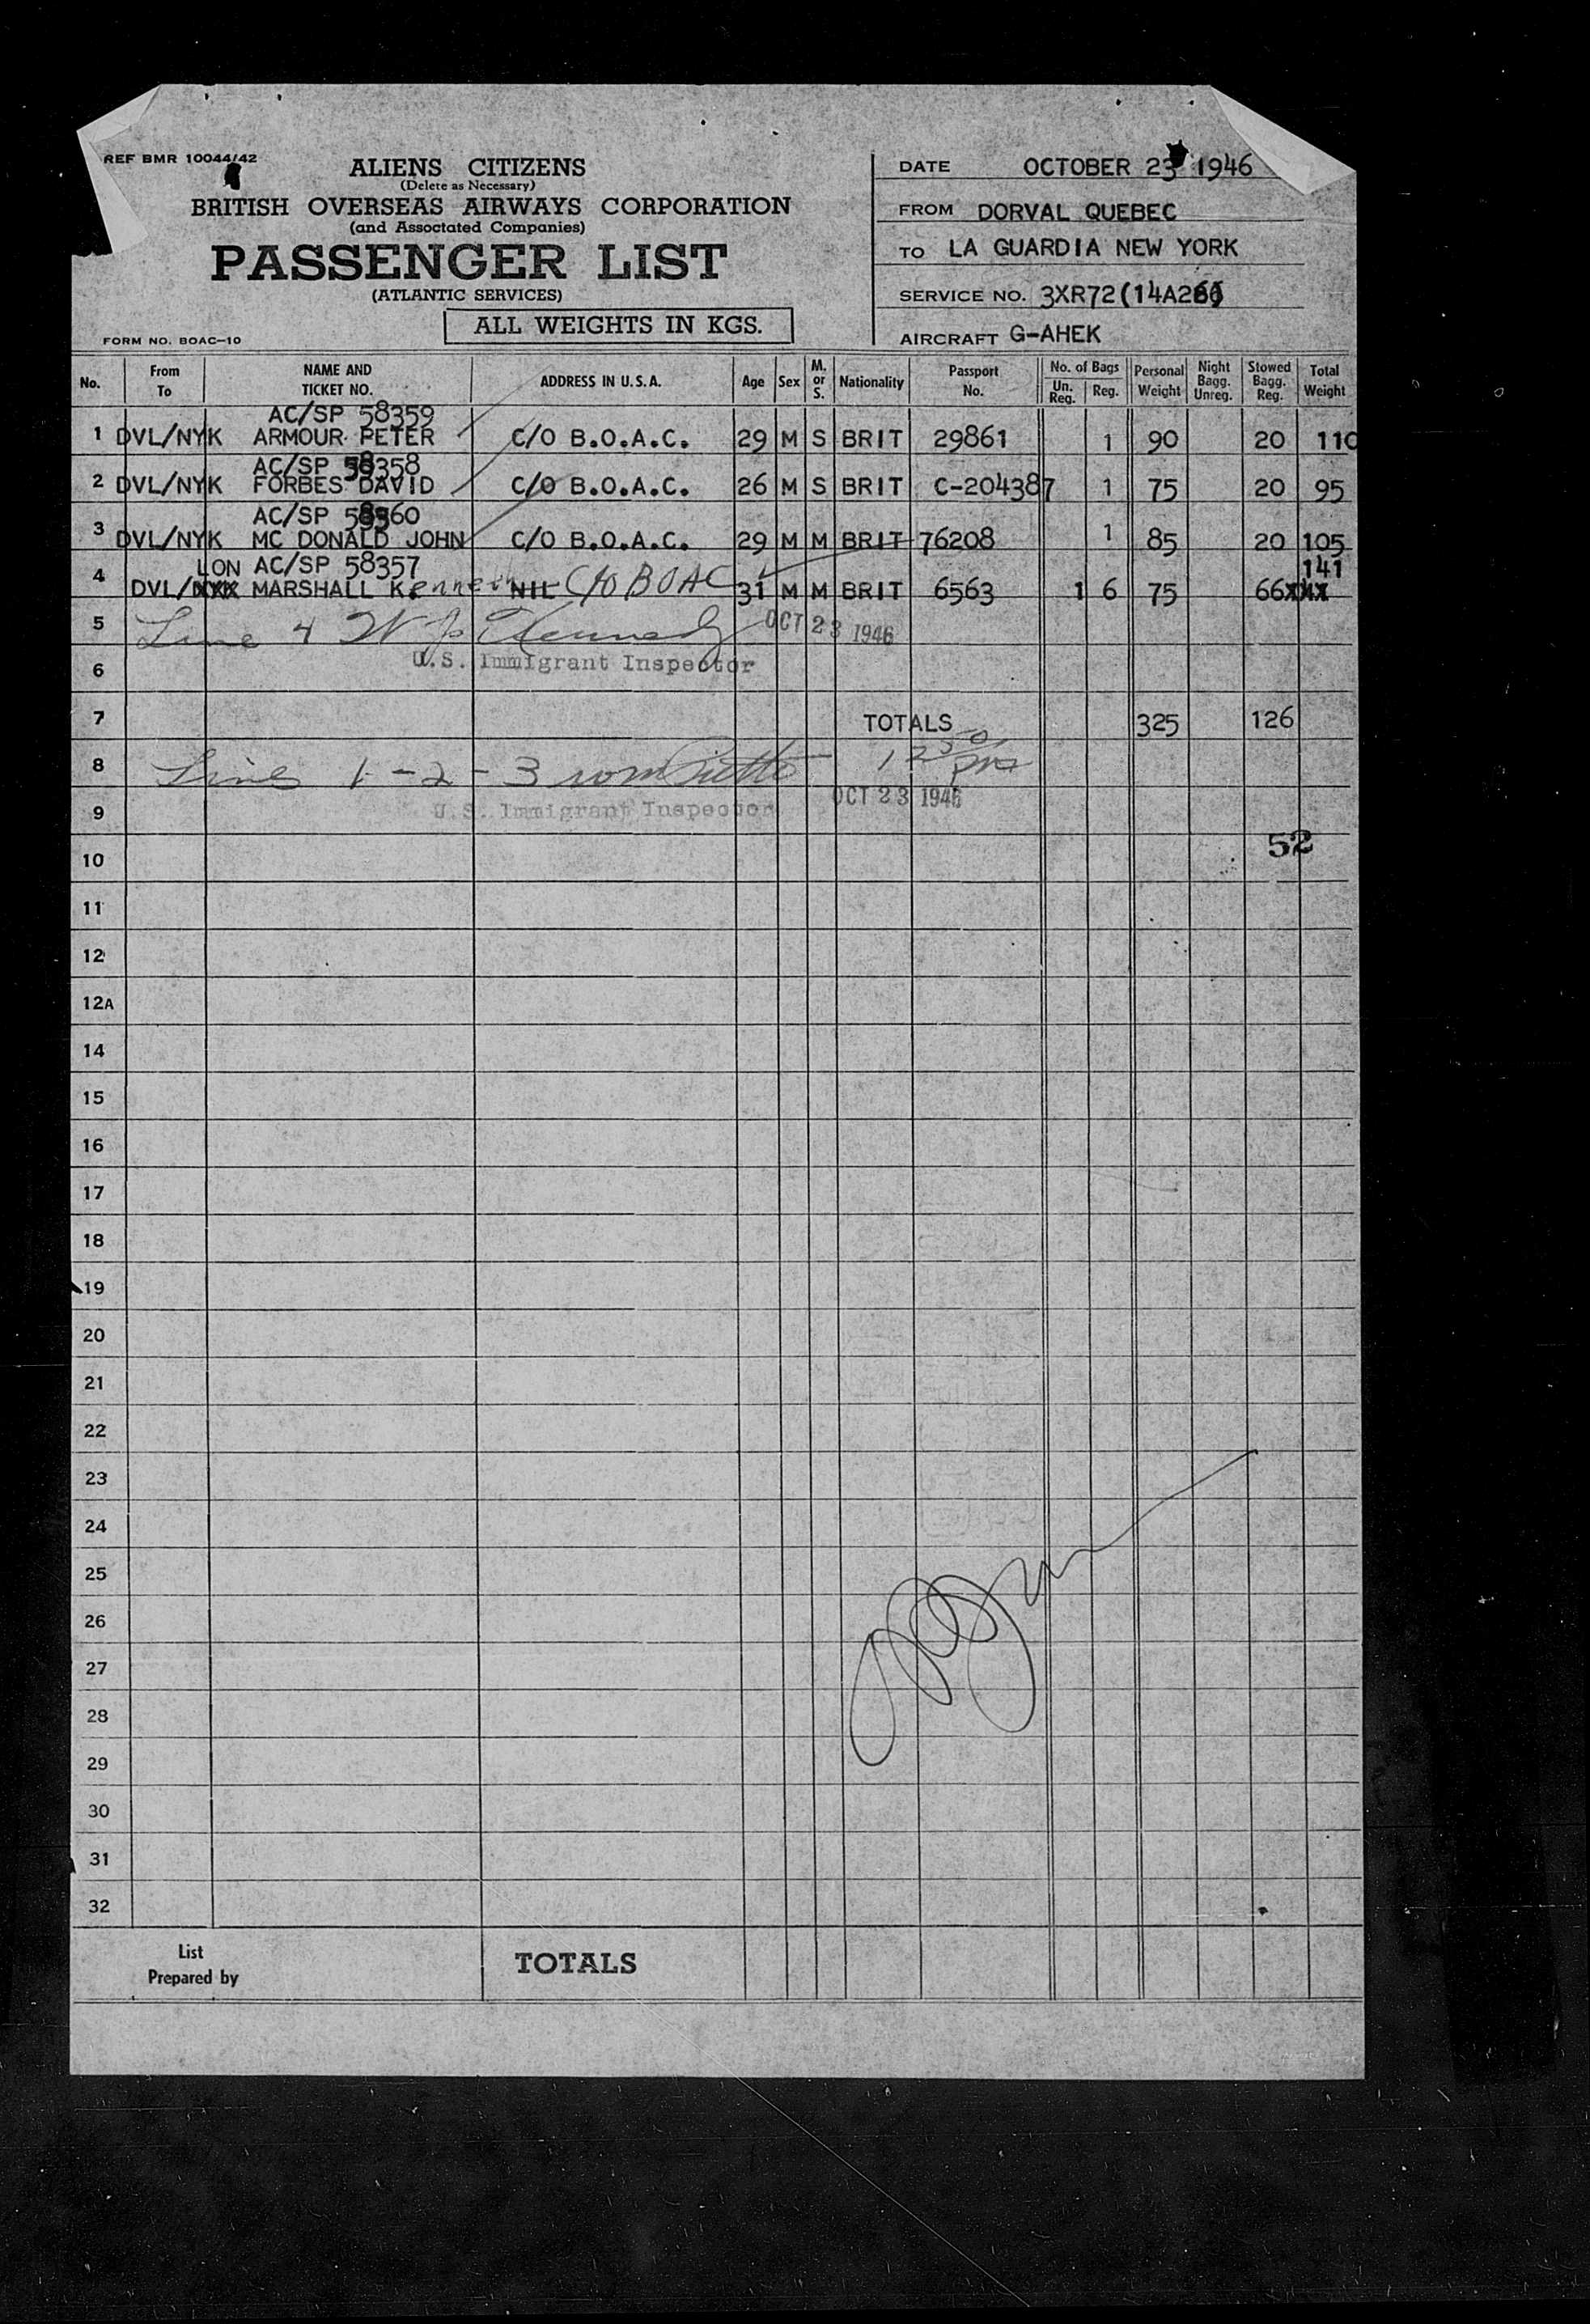 REF BMR 10044/42
ALIENS CITIZENS
(Delete as Necessary)
BRITISH OVERSEAS AIRWAYS CORPORATION
(and Associated Companies)
PASSENGER LIST
(ATLANTIC SERVICES)
ALL WEIGHTS IN KGS.
FORM NO. BOAC-10
DATE OCTOBER 23 1946
FROM DORVAL QUEBEC
TO LA GUARDIA NEW YORK
SERVICE NO. 3XR72
AIRCRAFT G-AHEK
No. From To NAME AND TICKET NO. ADDRESS IN U.S.A. Age Sex M. or S. Nationality Passport No. No. of Bags Un. Reg. Reg. Personal Weight Night Bagg. Unreg. Stowed Bagg. Reg. Total Weight
AC/SP 58359
1 DVL/NYK ARMOUR PETER C/O B.O.A.C. 29 M S BRIT 29861 1 90 20 110
AC/SP 58358
2 DVL/NYK FORBES DAVID C/O B.O.A.C. 26 M S BRIT C-204387 1 75 20 95
AC/SP 58360
3 DVL/NYK MC DONALD JOHN C/O B.O.A.C. 29 M M BRIT 76208 1 85 20 105
LON AC/SP 58357 141
4 DVL/NYK MARSHALL Kenneth NIL C/O BOAC 31 M M BRIT 6563 1 6 75 66
5 Line 4 Kennedy OCT 23 1946
U.S. Immigrant Inspector
6
7 TOTALS 325 126
8 Lines 1-2-3 12 50 pm
U.S. Immigrant Inspector OCT 23 1946
9
52
10
11
12
12A
14
15
16
17
18
19
20
21
22
23
24
25
26
27
28
29
30
31
32
List Prepared by TOTALS